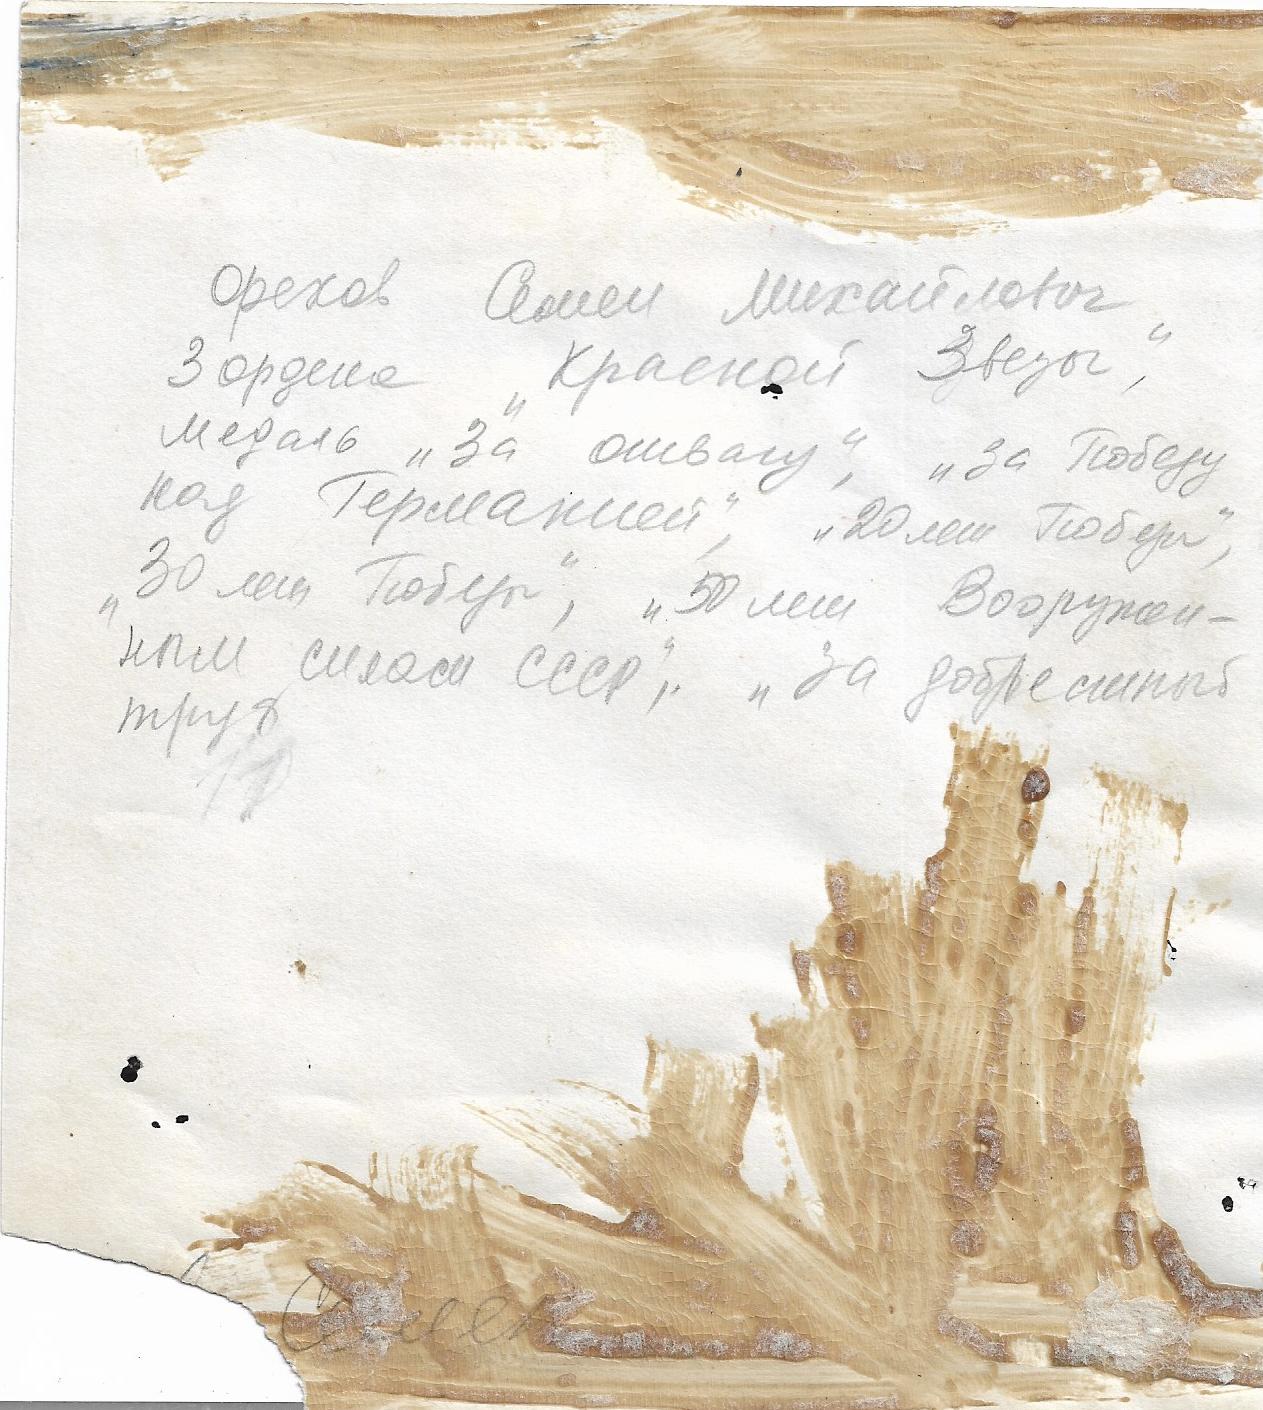 Орехов Семен Михайлович
3 ордена „Красной Звезы",
медаль „За отвагу", „За Победу
над Германией", „20 лет Победы",
„30 лет Победы", „50 лет Вооружен-
ным силам СССР", „За добрестный
труд
Семен